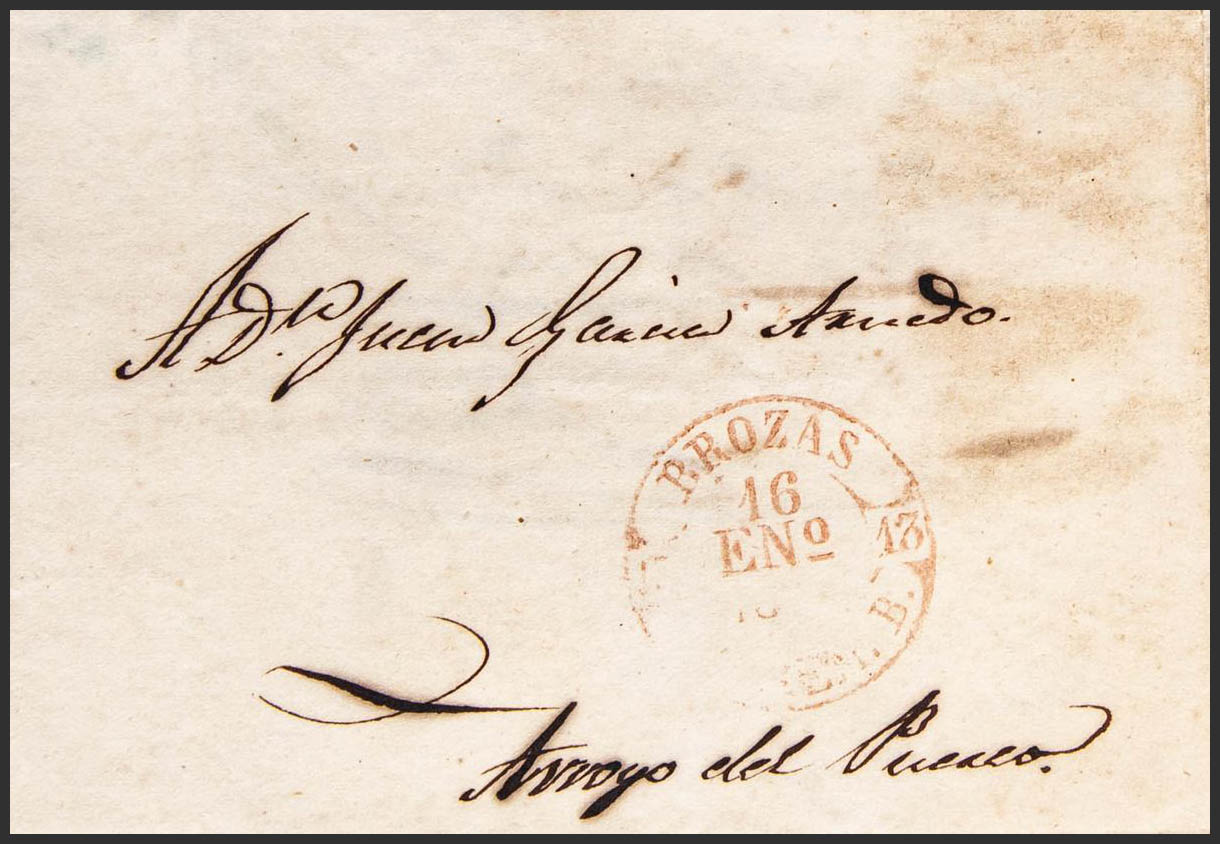 A Dn Juan Garcia Arnedo.
BROZAS
16
ENº
13
B.
Arroyo del Puerco.